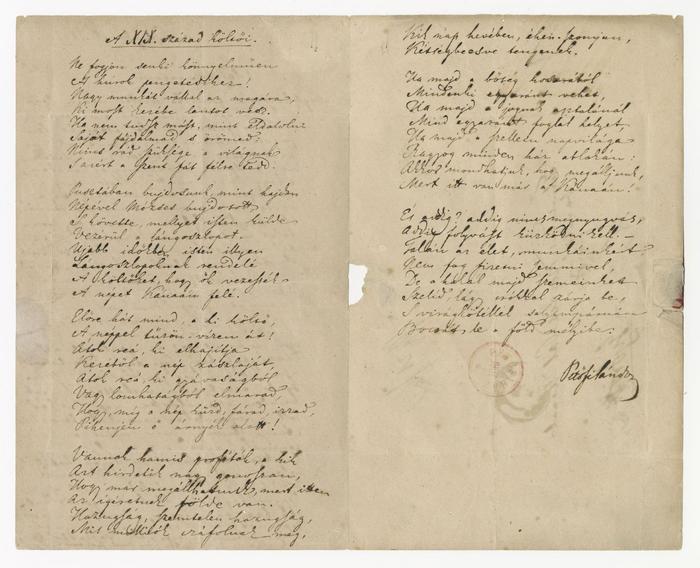 A XIX. század költői.
Ne fogjon senki könnyelműen
A húrok pengetésihez!
Nagy munkát vállal az magára,
Ki most kezébe lantot vesz.
Ha nem tudsz mást, mint eldalolni
Saját fájdalmad s örömed:
Nincs rád szüksége a világnak
S azért a szent fát félre tedd.
Pusztában bujdosunk, mint hajdan
Népével Mózses bujdosott
S követte, mellyet isten külde
Vezérül, a lángoszlopot.
Ujabb időkben isten illyen
Lángoszlopoknak rendelé
A költőket, hogy ők vezessék
A népet Kánaán felé.
Előre hát mind, a ki költő,
A néppel tűzön-vizen át!
Átok reá, ki elhajítja
Kezéből a nép zászlaját,
Átok reá, ki gyávaságból
Vagy lomhaságból elmarad,
Hogy, míg a nép küzd, fárad, izzad,
Pihenjen ő árnyék alatt!
Vannak hamis próféták, a kik
Azt hirdetik nagy gonoszan,
Hogy már megállhatunk, mert itten
Az igéretnek földe van.
Hazugság, szemtelen hazugság,
Mit milliók cáfolnak meg,
Kik nap hevében, éhen-szomjan,
Kétségbeesve tengenek.
Ha majd a bőség kosarából
Mindenki egyaránt vehet,
Ha majd a jognak asztalánál
Mind egyaránt foglal helyet,
Ha majd a szellem napvilága
Ragyog minden ház ablakán:
Akkor mondhatjuk, hogy megálljunk,
Mert itt van már a Kánaán!
És addig? addig nincs megnyugvás,
Addig folyvást küszködni kell. –
Talán az élet, munkáinkért,
Nem fog fizetni semmivel,
De a halál majd szemeinket
Szelíd, lágy csókkal zárja be,
S virágkötéllel selyempárnán
Bocsát le a föld mélyibe.
Petőfi Sándor